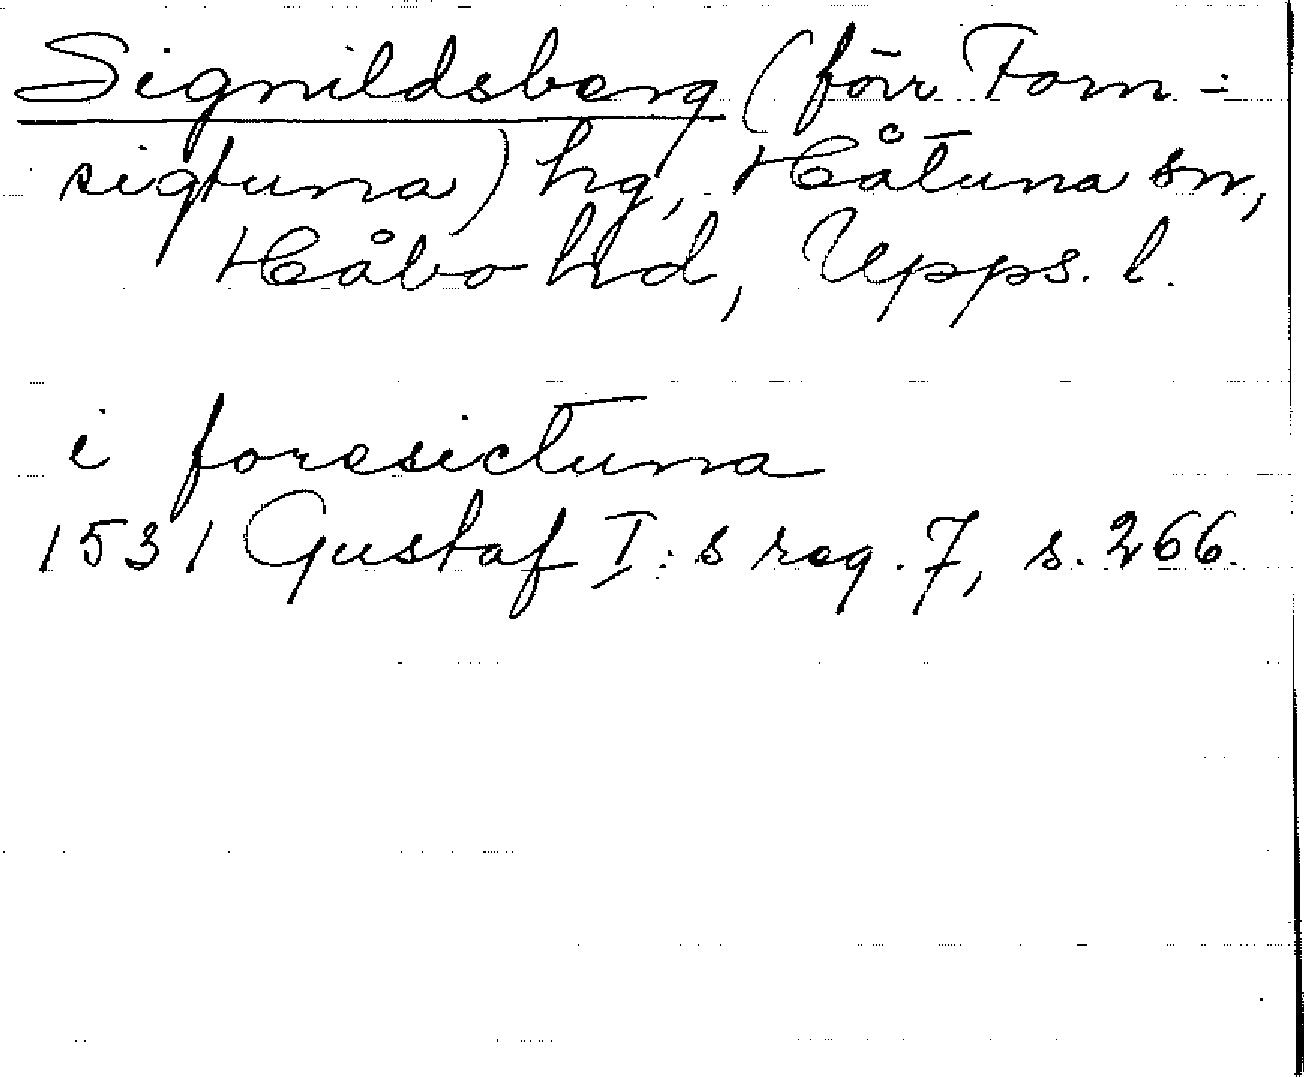 Signildsberg (förr Forn-
sigtuna) hg, Håtuna sn,
Håbo hd, Upps. l.
i foresictuna
1531 Gustaf I:s reg. 7, s. 266.